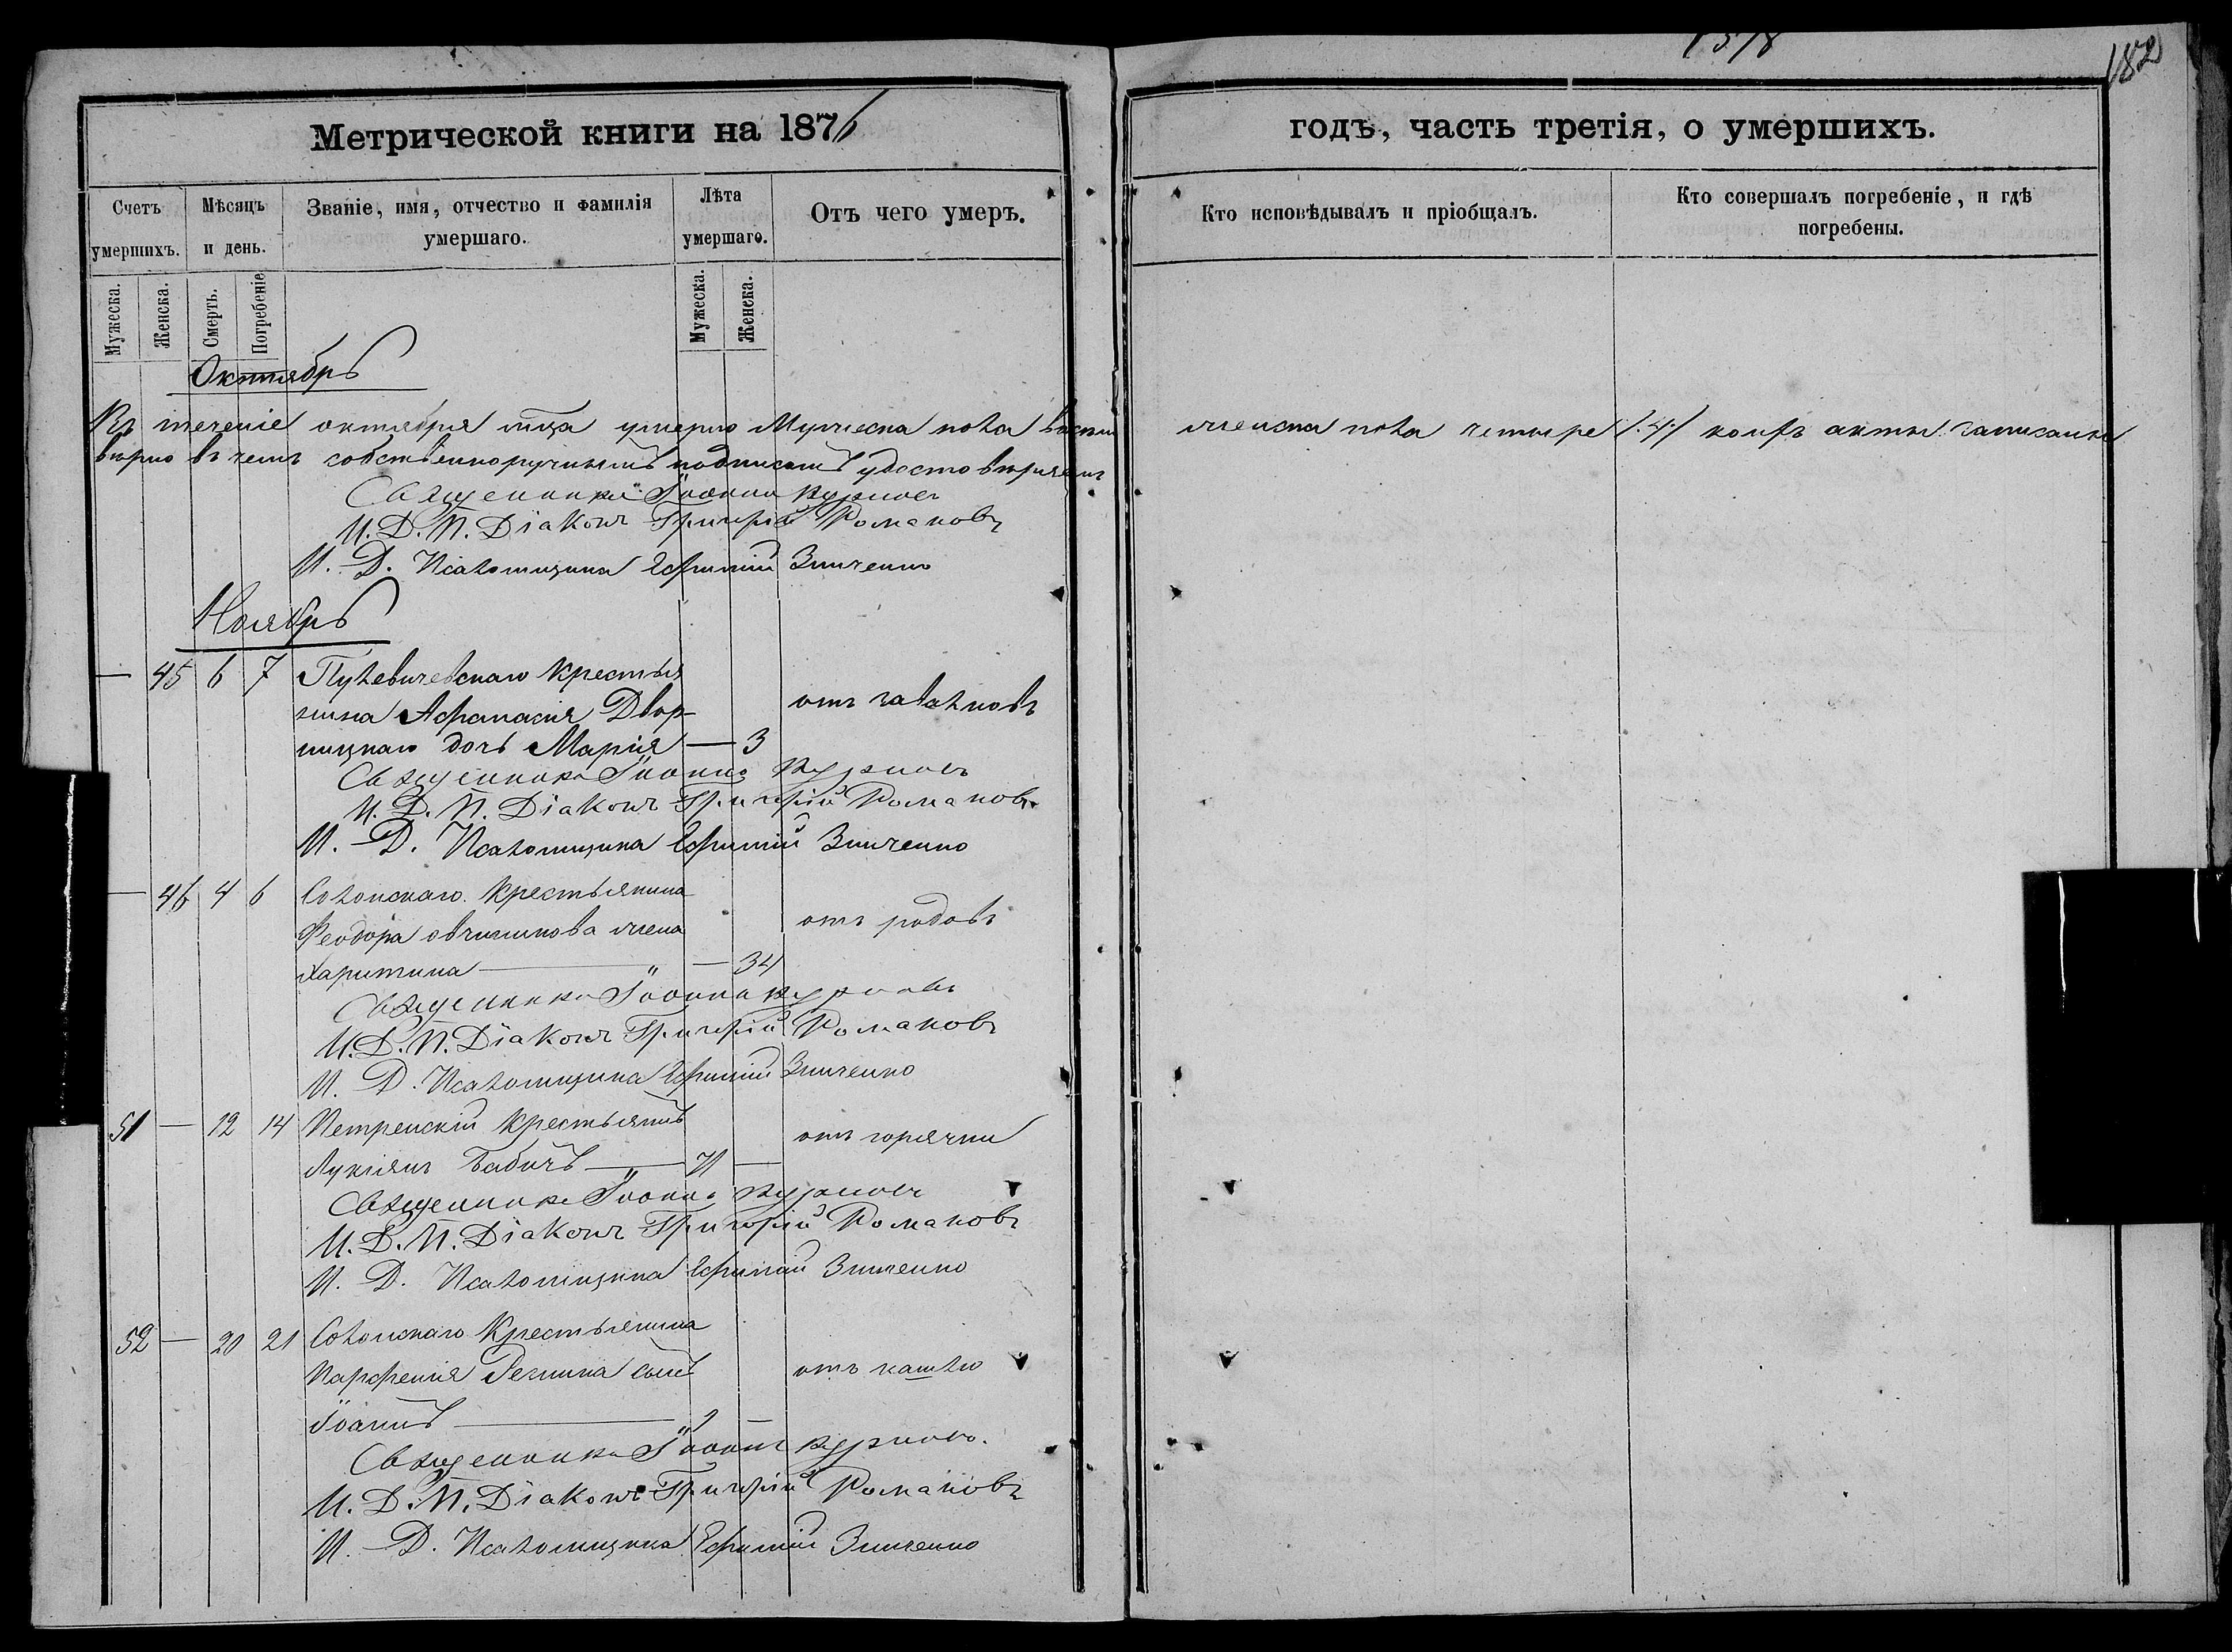 1378
182
Метрической книги на 1876
годъ, часть третія, о умершихъ.
Счетъ умершихъ.
Мѣсяцъ и день.
Званіе, имя, отчество и фамилія умершаго.
Лѣта умершаго.
Отъ чего умеръ.
Кто исповѣдывалъ и пріобщалъ.
Кто совершалъ погребеніе, и гдѣ погребены.
Мужеска.
Женска.
Смерть.
Погребеніе
Мужеска.
Женска.
Октябрь
Въ теченіе октября мца умерло Мужеска пола восемь женска пола четыре /:4:/ коихъ акты записаны
вѣрно въ чемъ собственноручнымъ подписомъ удостовѣряемъ
Священникъ Іоаннъ
И. Д. П. Діаконъ Григорій Романовъ
И. Д. Псаломщика Ефимій Зинченко
Ноябрь
— 45 6 7 Пулевичевскаго крестья
нина Афанасія Двор- отъ
ницкаго дочь Марія — 3
Священникъ Іоаннъ
И. Д. П. Діаконъ Григорій Романовъ
И. Д. Псаломщика Ефимій Зинченко
— 46 4 6 Солонскаго крестьянина
Феодора овчинникова жена отъ родовъ
Харитина — 34
Священникъ Іоаннъ
И. Д. П. Діаконъ Григорій Романовъ
И. Д. Псаломщика Ефимій Зинченко
51 — 12 14 Петренскій крестьянинъ
Лукіянъ Бабичъ — отъ горячки
Священникъ Іоаннъ
И. Д. П. Діаконъ Григорій Романовъ
И. Д. Псаломщика Ефимій Зинченко
52 — 20 21 Солонскаго крестьянина
Парфенія сынъ отъ кашлю
Іоаннъ — 2 —
Священникъ Іоаннъ
И. Д. П. Діаконъ Григорій Романовъ
И. Д. Псаломщика Ефимій Зинченко